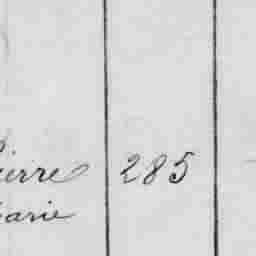 ierre 285
arie